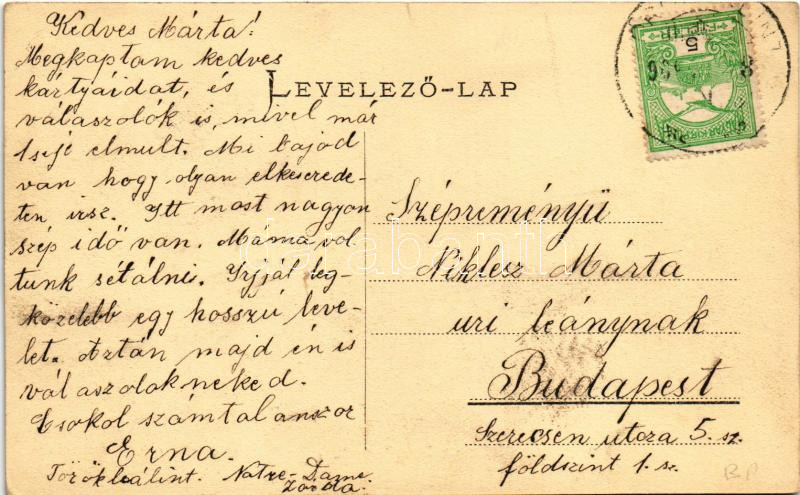 Kedves Márta!
Megkaptam kedves
kártyáidat, és
válaszolók is, mivel már
1 sije elmult. Mi bajod
van hogy olyan elkeserede-
ten irsz. Itt most nagyon
szép idő van. Máma vol
tunk sétálni. Irjjál leg-
közelebb egy hosszú leve-
let. Aztán majd én is
válaszolok neked.
Csokol számtalanszor
Erna.
Törökbálint. Notre-Dame
Zárda.
LEVELEZŐ-LAP
Szépreményü
Niklesz Márta
uri leánynak
Budapest
Szerecsen utcza 5. sz.
földszint 1. sz.
BP
MAGYAR KIR. POSTA
5
FILLÉR
darabanth